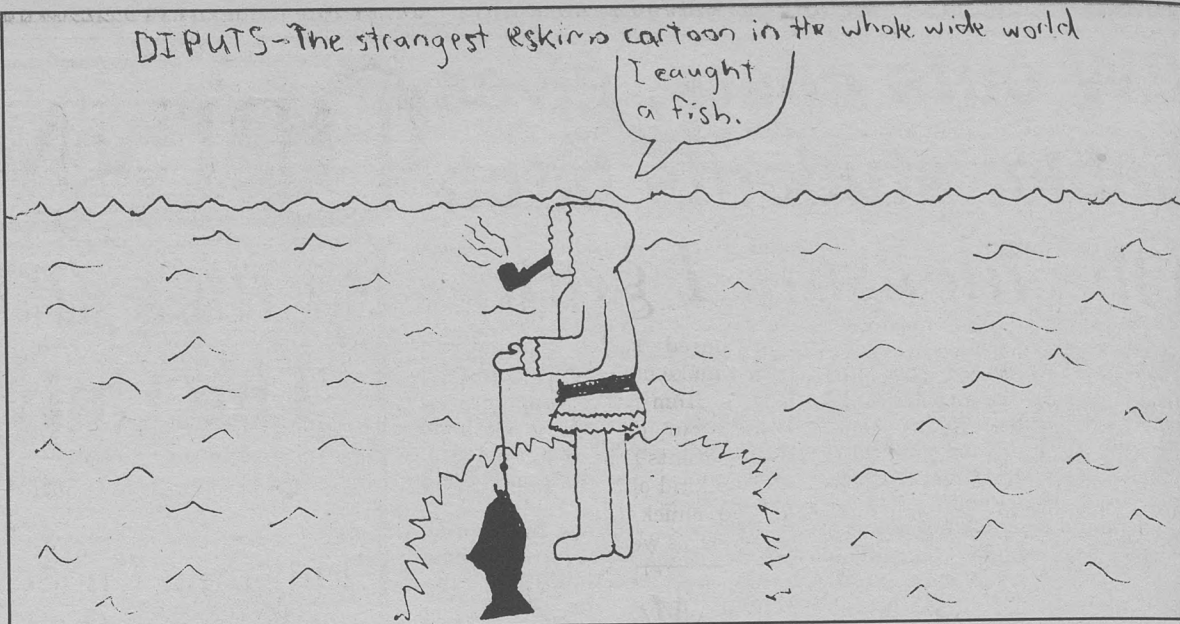 DIPUTS-The strangest eskimo cartoon in the whole wide world
I caught
a fish.